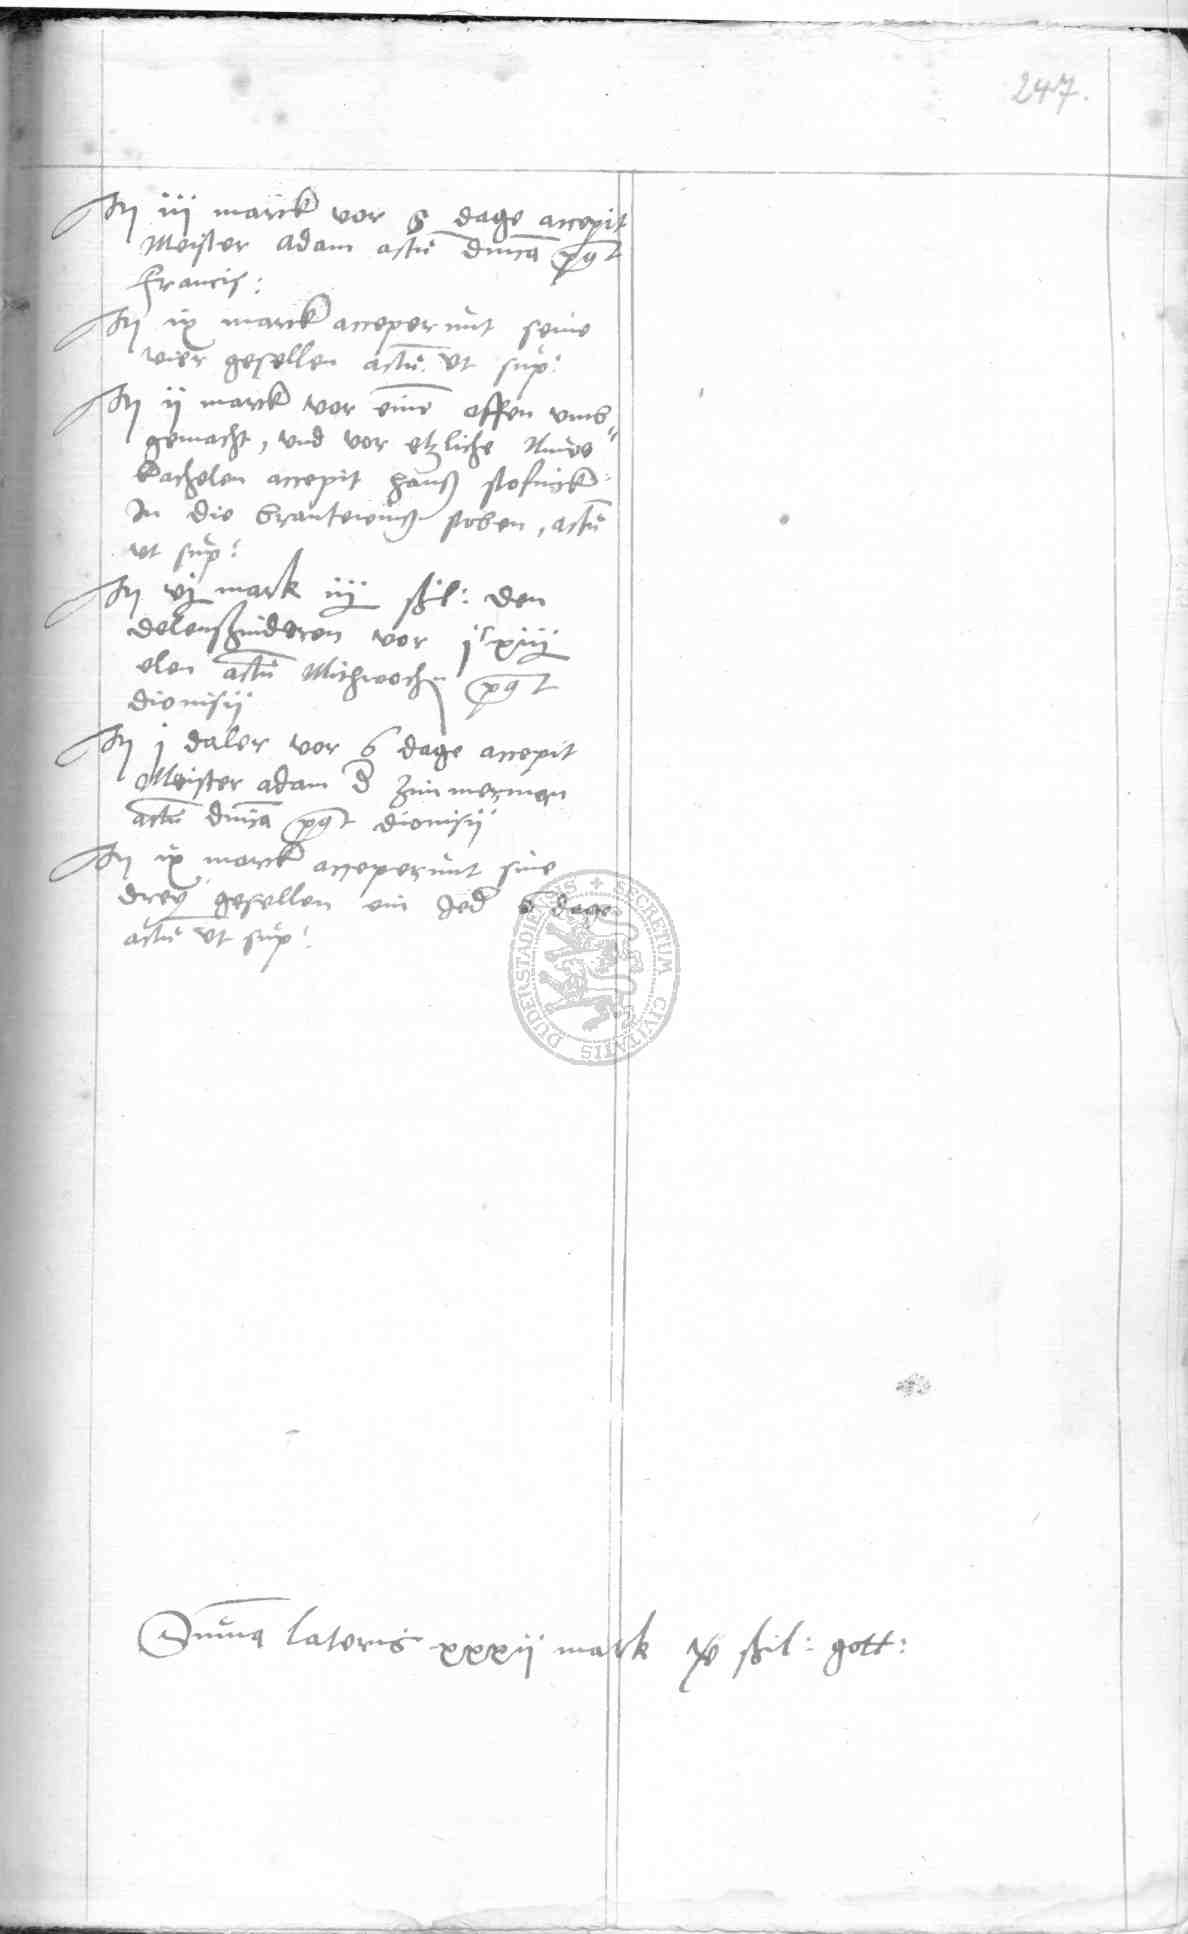 247.
It iij marck vor 6 dage accepit
Meister Adam actu dnica post
Francis:
It ix marck acceperunt seine
vier gesellen actu ut sup:
It ij marck vor eine offen umb
gemacht, und vor etzliche
kachelen accepit Hans
In die branteweins stoben, actu
ut sup:
It vj mark iiij ßil: den
delensnideren vor jc xiiij
elen actu Mithwochen post
dionisij
It j daler vor 6 dage accepit
Meister adam d Zimmerman
actu dnica post dionisij
It ix marck acceperunt sine
drey gesellen ein Jed 6 dage
actu ut sup:
DUDERSTADIENSIS + SECRETUM CIVITATIS
Suma lateris xxxij mark ßil: gott: